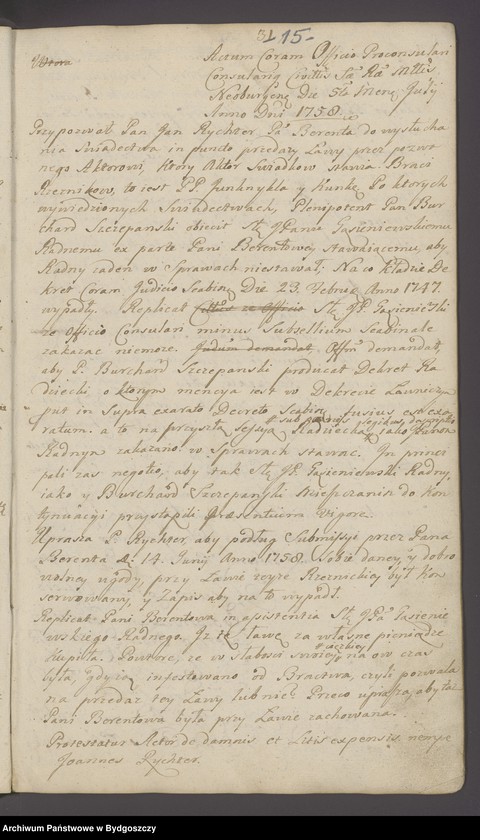 31 15.
Actum Coram Officio Proconsulari
Consulariq Civittis Sae Rae Mttis
Neoburgens Die 5ta Mens Julij
Anno Dni 1758.
Przypozwał Pan Jan Rychter Pa Berenta do wysłucha
nia Swiadectwa in puncto przedazy Ławy przez pozwa
nego Aktorowi, ktory Aktor Swiadkow stawia. Braci
Rzeznikow, to iest PP. Junknykla y Kunkę. Po ktorych
wywiedzionych Swiadectwach, Plenipotent Pan Bur
chard Szczepanski obiecit Słę JPanu Gąsieniewskiemu
Radnemu ex parte Pani Berentowey stawaiącemu, aby
Radny żaden w Sprawach niestawał, Na co kładzie De
kret Coram Judicio Scabin Die 23. Febrij Anno 1747
wypadły. Replicat Słę JP. Gąsieniewski
ze Officio Consulari minus Subsellium Scabinale
zakazac niemoze. Judum demandat, Offm demandat,
aby P. Burchard Szczepanski producat Dekret Ra
dziecki, o ktorym mencya iest w Dekrecie Ławniczym
put in Supra exarato Decreto Scabin fusius est exa
ratum. a to na przyszłą Sessyą sub paenis Radziecką, jako
Radnym zakazano w Sprawach stawac. In princi
pali zas negotio, aby tak Słę JP. Gąsieniewski Radny,
iako y Burchard Szczepanski Mieszczanin do kon
tynuacyi przystąpili Praesentium Vigore.
Uprasza P. Rychter, aby podług Submissyi przez Pana
Berenta de 14. Junij Anno 1758. Sobie daney, y dobro
wolney ugody, przy Ławie wyze Rzeznickiey był kon
serwowany, y Zapis aby na to wypadł.
Replicat Pani Berentowa in assistentia Słę JPa Gąsienie
wskiego Radnego, Iz tę Ławę za własne pieniądze
kupiła. Powtore, ze w słabosci swoiey na ow czas
była, gdy ią infestowano od Bractwa, czyli pozwala
na przedaz tey Ławy lub nie? Przeco uprasza, aby taz
Pani Berentowa była przy Ławie zachowana.
Protestatur Actor de damnis et Litis expensis nempe
Joannes Rychter.
Archiwum Państwowe w Bydgoszczy